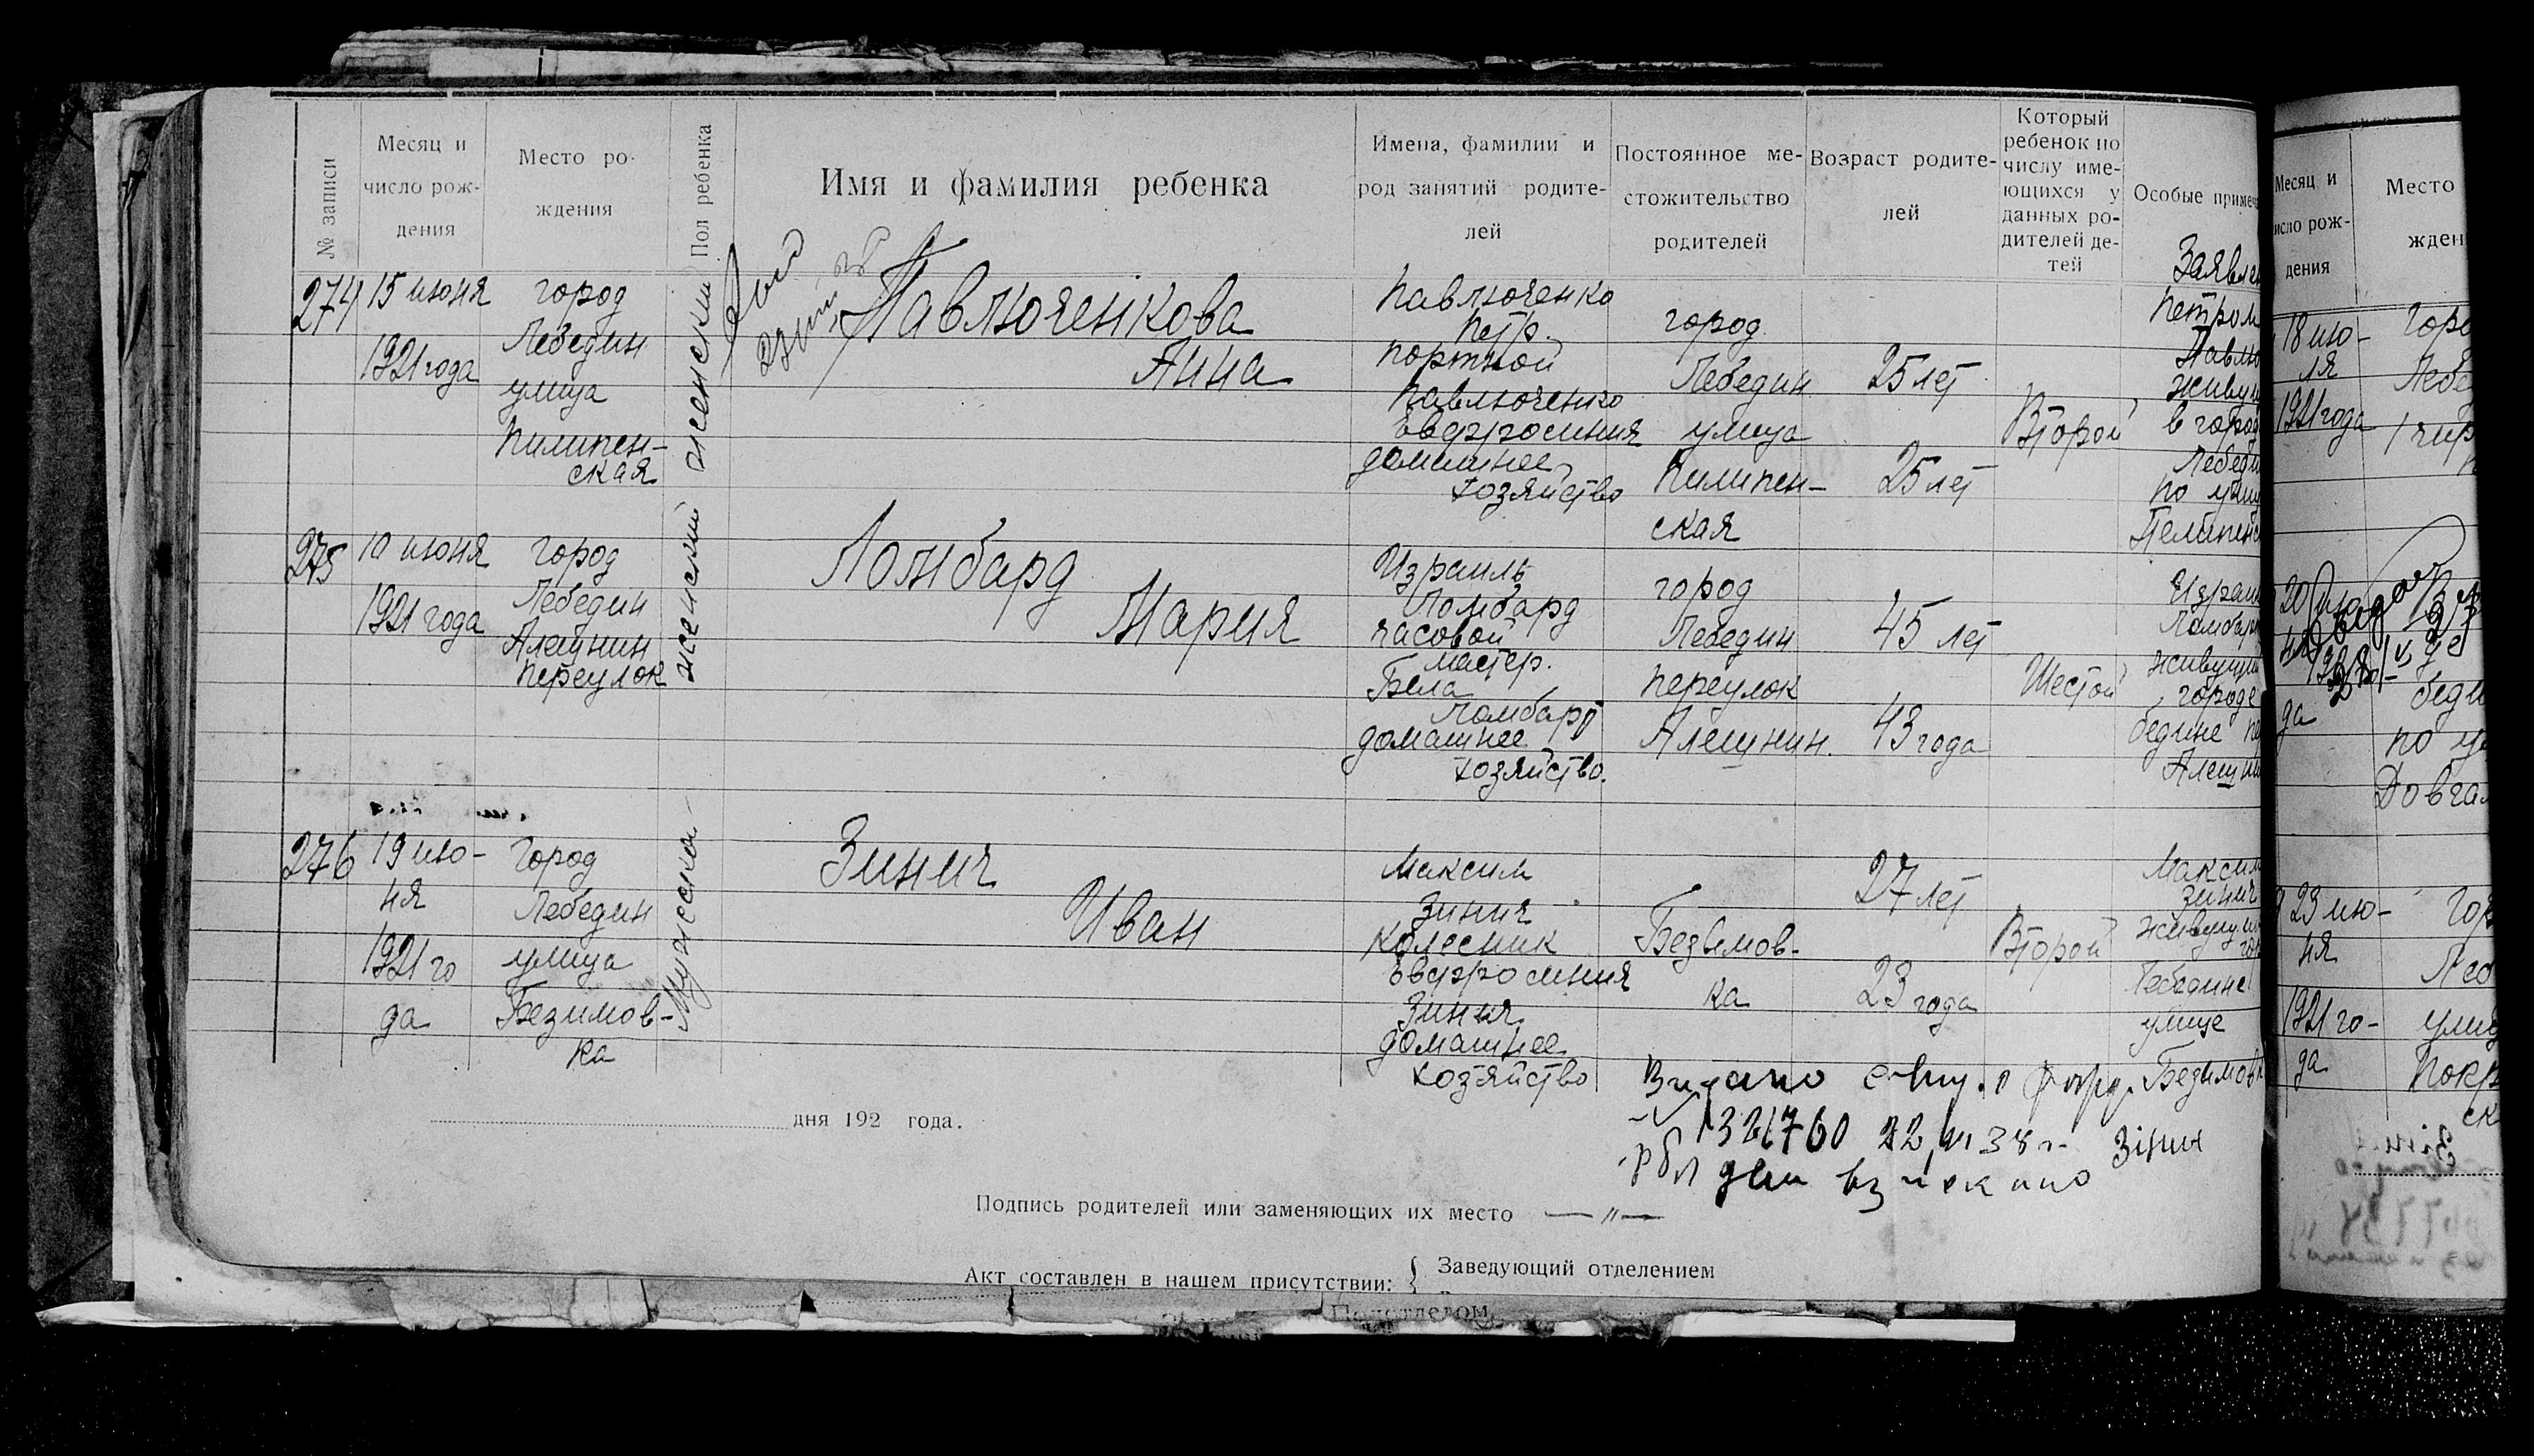 № записи
Месяц и
число рож-
дения
Место ро-
ждения
Пол ребенка
Имя и фамилия ребенка
Имена, фамилии и
род занятий родите-
лей
Постоянное ме-
стожительство
родителей
Возраст родите-
лей
Который
ребенок по
числу име-
ющихся у
данных ро-
дителей де-
тей
Особые примеч
274
15 июня
1921 года
город
Лебедин
улица
Пилипен-
ская
женский
Павлюченкова
Анна
Павлюченко
Петр.
портной
Павлюченко
Евфросиния
домашнее
хозяйство
город
Лебедин
улица
Пилипен-
ская
25 лет
25 лет
Второй
Заявлен
Петром
Павлю
живущ
в город
Лебеди
по улиц
Пелипенс
275
10 июня
1921 года
город
Лебедин
Алещнин
переулок
женский
Ломбард
Мария
Израиль
Ломбард
часовой
мастер.
Бела
Ломбард
домашнее
хозяйство.
город
Лебедин
переулок
Алещнин.
45 лет
43 года
Шестой
Израил
Ломбард
живущий
городе
бедине пе
Алещни
276
19 ию-
ня
1921 го
да
город
Лебедин
улица
Безимов-
ка
Мужеска-
Зинич
Иван
Максим
Зинич
Колесник
Евфросиния
Зинич
домашнее
хозяйство
Безимов-
ка
27 лет
23 года
Второй
Максим
Зинич
живущи
гор
Лебедине
улице
Безимовк
Видано
321760 22/VI 38 г. Зінич
дня 192 года.
Подпись родителей или заменяющих их место — „ —
Акт составлен в нашем присутствии: { Заведующий отделением
Подотделом
Месяц и
исло рож-
дения
Место
жден
18 ию-
ля
1921 года
Горо
Лебе
да
беди
по ул
Довгал
23 ию-
ня
1921 го-
да
Гор
Леб
улиц
Покр
ск